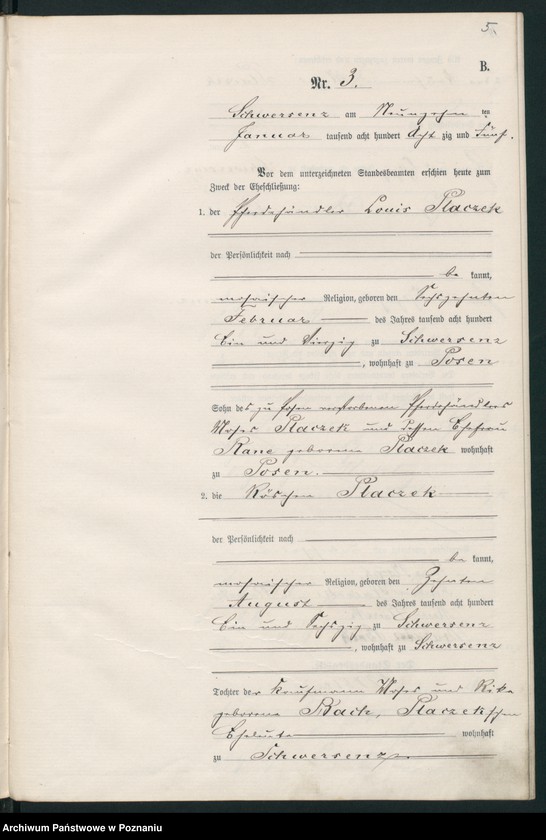 5.
B.
Nr. 3.
Schwersenz am Neunzehn ten
Januar tausend acht hundert Acht zig und Fünf.
Vor dem unterzeichneten Standesbeamten erschien heute zum
Zweck der Eheschließung:
1. der Pferdehändler Louis Placzek
der Persönlichkeit nach
be kannt,
mosaischer Religion, geboren den Sechszehnten
Februar des Jahres tausend acht hundert
Ein und Vierzig zu Schwersenz
, wohnhaft zu Posen
Sohn des zu Posen verstorbenen Pferdehändlers
Moses Placzek und dessen Ehefrau
geborene Placzek wohnhaft
zu Posen.
2. die Röschen Placzek
der Persönlichkeit nach
be kannt,
mosaischer Religion, geboren den Zehnten
August des Jahres tausend acht hundert
Ein und Sechszig zu Schwersenz
, wohnhaft zu Schwersenz
Tochter der Kaufmann Moses und Rika
geborene Back, Placzek'schen
Eheleute wohnhaft
zu Schwersenz.
Archiwum Państwowe w Poznaniu